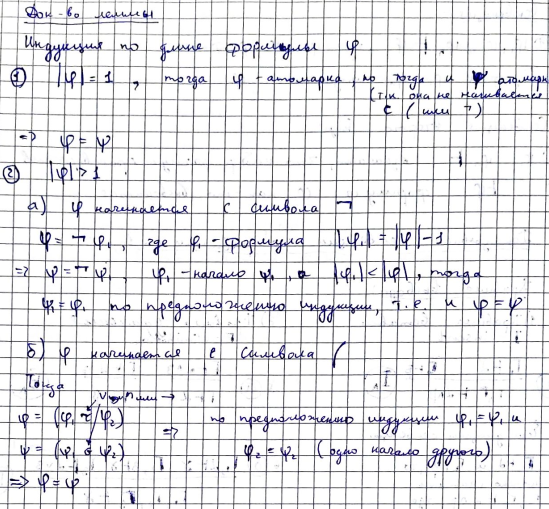 Док-во леммы
Индукция по длине формулы φ
① |φ| = 1, тогда φ - атомарка, но тогда и ψ атомарн
(т.к. она не начинается
с ( или ¬)
=> φ = ψ
② |φ| > 1
а) φ начинается с символа ¬
φ = ¬ φ₁, где φ₁ - формула |φ₁| = |φ| - 1
=> ψ = ¬ ψ₁, φ₁ - начало ψ₁, а |φ₁| < |φ|, тогда
ψ₁ = φ₁ по предположению индукции, т.е. и φ = ψ
б) φ начинается с символа (
Тогда
∨ или ∧ или →
φ = (φ₁ τ φ₂) => по предположению индукции φ₁ = ψ₁ и
ψ = (ψ₁ σ ψ₂) φ₂ = ψ₂ (одно начало другого)
=> φ = ψ